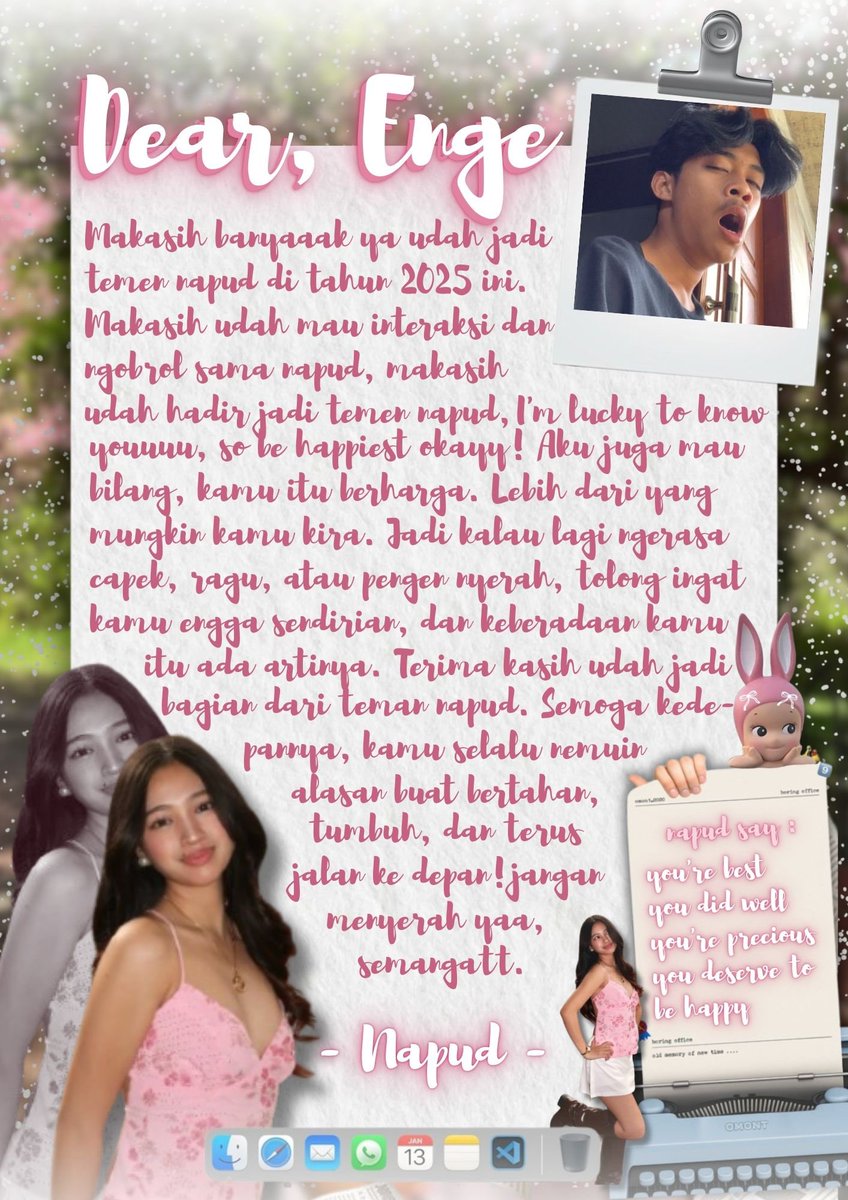 Dear, Enge
Makasih banyaaak ya udah jadi
temen napud di tahun 2025 ini.
Makasih udah mau interaksi dan
ngobrol sama napud, makasih
udah hadir jadi temen napud, I'm lucky to know
youuuu, so be happiest okayy! Aku juga mau
bilang, kamu itu berharga. Lebih dari yang
mungkin kamu kira. Jadi kalau lagi ngerasa
capek, ragu, atau pengen nyerah, tolong ingat
kamu engga sendirian, dan keberadaan kamu
itu ada artinya. Terima kasih udah jadi
bagian dari teman napud. Semoga kede-
pannya, kamu selalu nemuin
alasan buat bertahan,
tumbuh, dan terus
jalan ke depan!jangan
menyerah yaa,
semangatt.
- Napud -
boring office
napud say :
you're best
you did well
you're precious
you deserve to
be happy
boring office
old memory of new time ....
OMONT
JAN
13